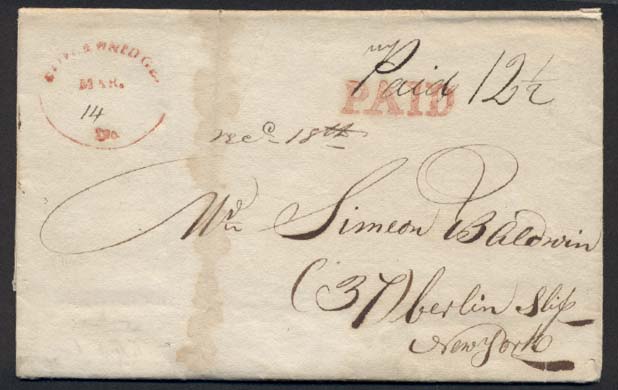 STOCKBRIDGE.
MAR.
14
Paid 12½
PAID
Rec^d 18th
Mr Simeon Baldwin
(37) berlin Slip
New York